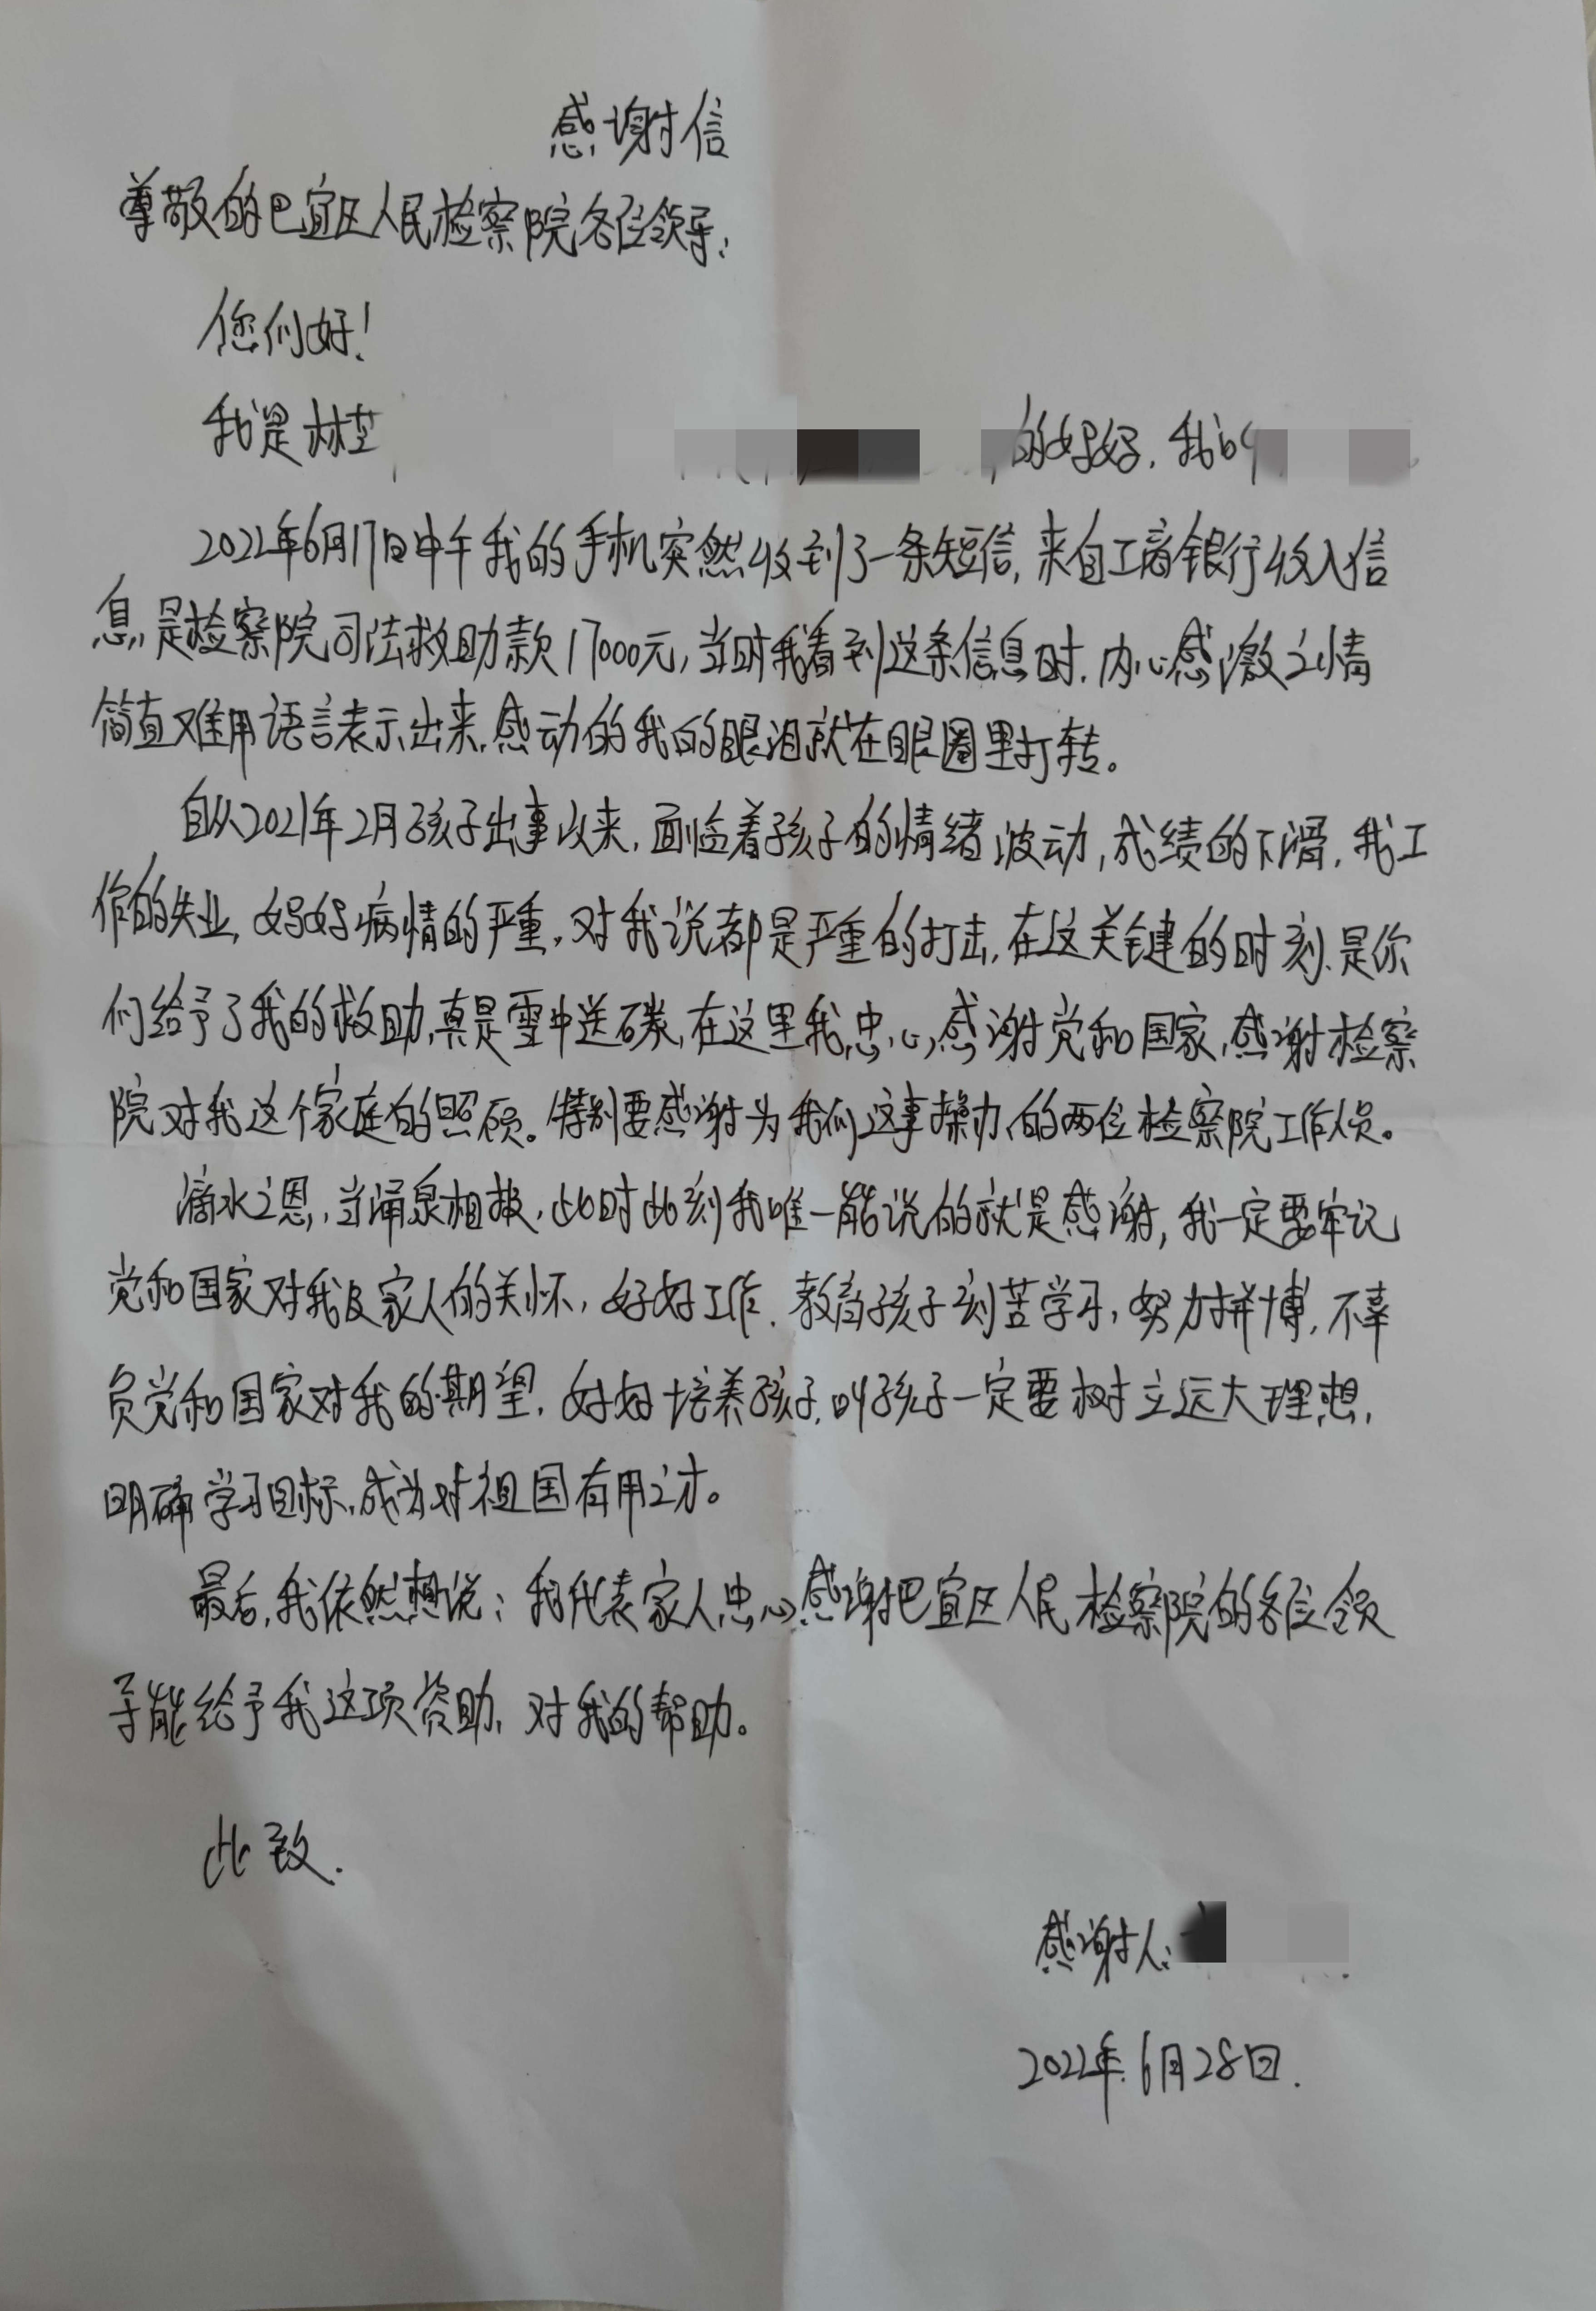 感谢信
尊敬的巴宜区人民检察院各位领导：
您们好！
我是林芝 的妈妈，我的
2022年6月17日中午我的手机突然收到了一条短信，来自工商银行收入信
息，是检察院司法救助款17000元，当时我看到这条信息时，内心感激之情
简直难用语言表示出来，感动的我的眼泪就在眼圈里打转。
自从2021年2月孩子出事以来，面临着孩子的情绪波动，成绩的下滑，我工
作的失业，妈妈病情的严重，对我说都是严重的打击，在这关键的时刻，是你
们给予了我的救助，真是雪中送碳，在这里我忠心感谢党和国家，感谢检察
院对我这个家庭的照顾。特别要感谢为我们这事操办的两位检察院工作人员。
滴水之恩，当涌泉相报，此时此刻我唯一能说的就是感谢，我一定要牢记
党和国家对我及家人的关怀，好好工作，教育孩子刻苦学习，努力拼博，不辜
负党和国家对我的期望，好好培养孩子，叫孩子一定要树立远大理想，
明确学习目标，成为对祖国有用之才。
最后，我依然想说：我代表家人忠心感谢把宜区人民检察院的各位领
导能给予我这项资助，对我的帮助。
此致.
感谢人：
2022年6月28日.